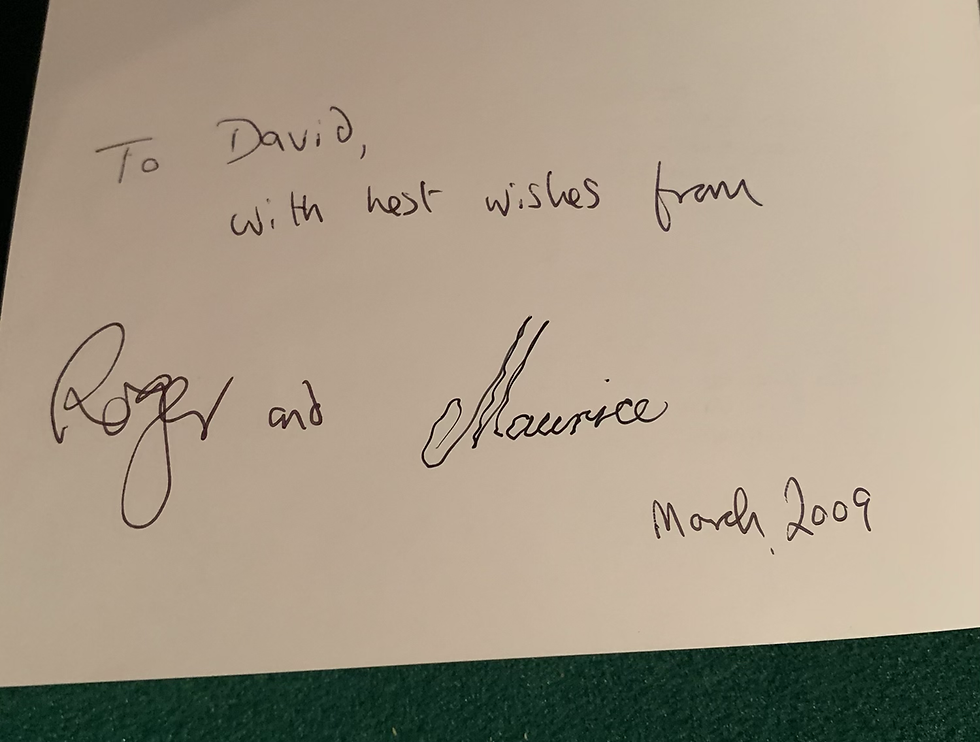 To David,
with best wishes from
Roger and Maurice
March, 2009